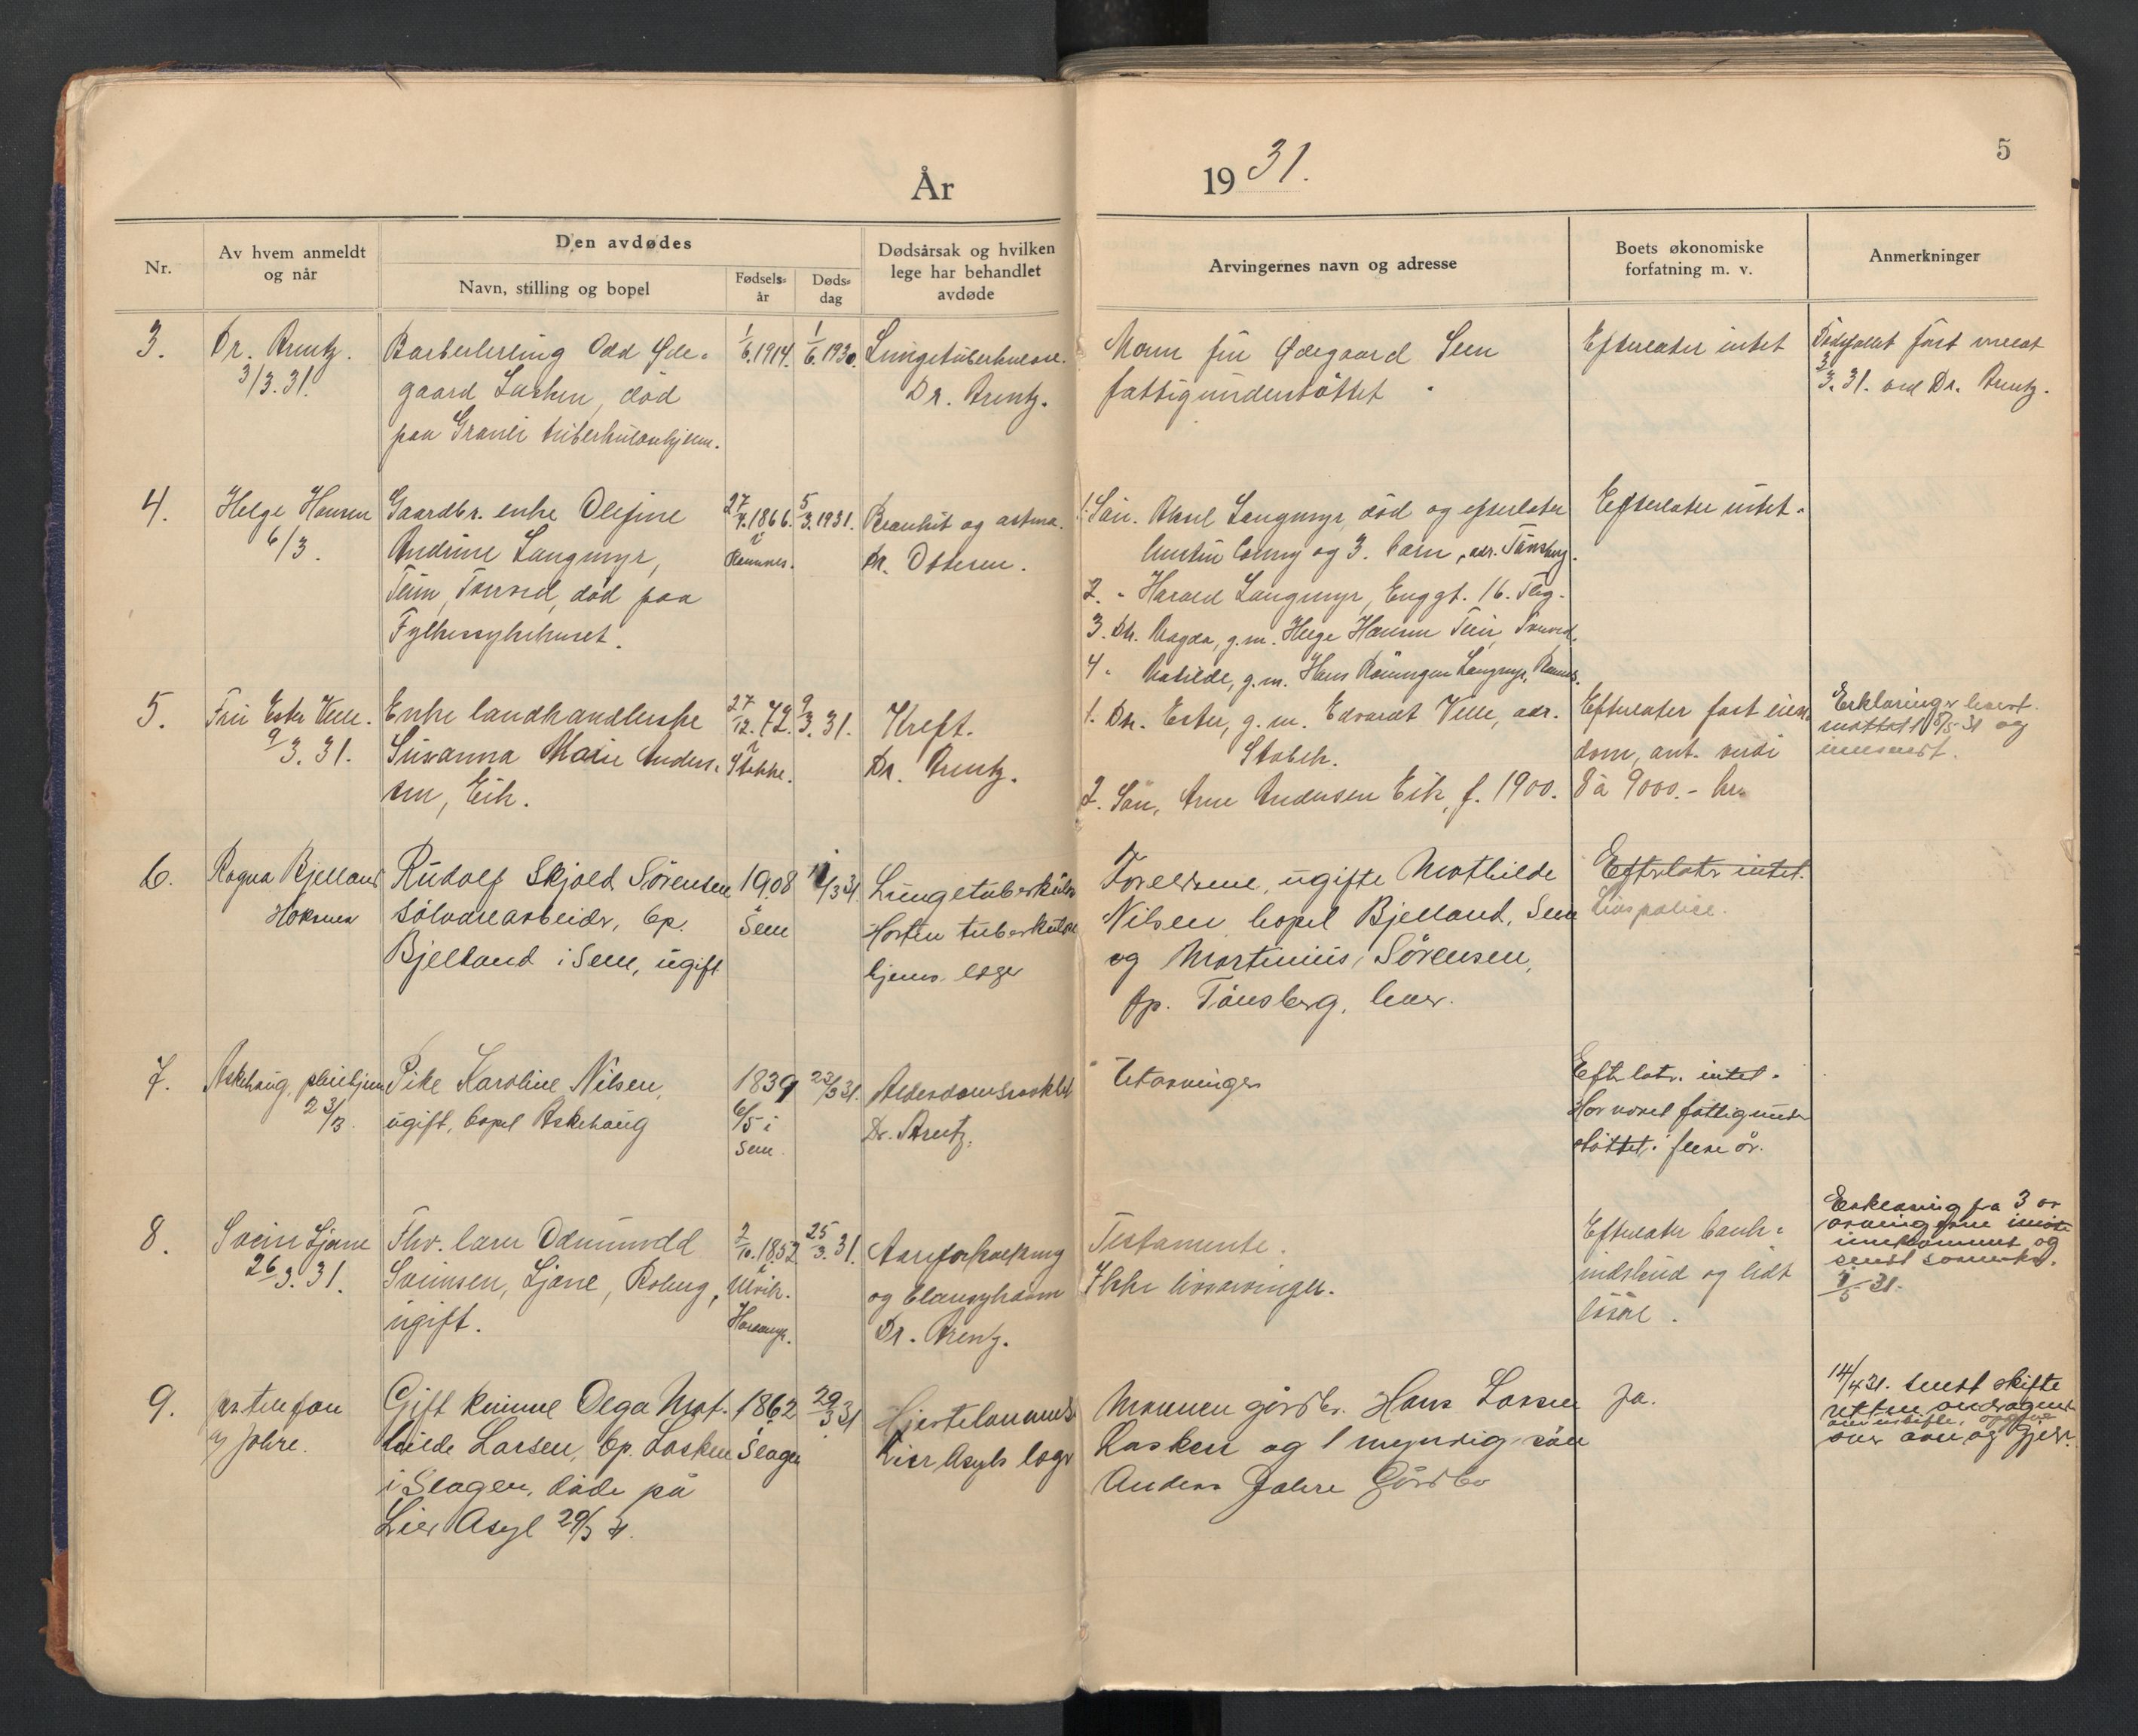 5
År 1931.
Nr.
Av hvem anmeldt
og når
Den avdødes
Navn, stilling og bopel
Fødsels-
år
Døds-
dag
Dødsårsak og hvilken
lege har behandlet
avdøde
Arvingernes navn og adresse
Boets økonomiske
forfatning m. v.
Anmerkninger
3.
Dr. Arentz.
3/3.31.
Barberlerling Odd Øde-
gaard Lasken, død
paa Granli tuberkulosehjem.
1/6.1914.
1/6.1930.
Lungetuberkulose.
Dr. Arentz.
Mor fru Ødegaard Sem
fattigunderstøttet
Efterlater intet
Dødsfallet først meldt
3/3.31. ved Dr. Arentz.
4.
Helge Hansen
6/3.
Gaardbr. enke Olefine
Andrine Langmyr,
Tem, Tonsed, død paa
Fylkessykehuset.
27/4.1866.
i
Ramnes.
5/3.1931.
Bronkit og astma.
Dr. Ottesen.
1. Søn. Aksel Langmyr, død og efterlater
og 3. barn, adr. Tønsberg.
2. " Harald Langmyr, Enggt. 16. Tbg.
3. Dtr. Magda, g.m. Helge Hansen Tem,
4 " Mathilde, g.m. Hans Langmyr, Ramnes.
Efterlater intet.
5.
Fru Ester Velle.
9/3.31.
Enke landhandlerske
Susanna Marie Anders-
sen, Eik.
27/12.72.
i
Stokke.
9/3.31.
Kreft.
Dr. Arentz.
1. Dtr. Ester, g.m. Edvardt Velle, adr.
Stabek.
2. Søn, Arne Andersen Eik, f. 1900.
Efterlater fast eien-
dom, ant. verdi
8 à 9000.- kr.
Erklæring levert.
mottatt 18/5-31 og
innsendt.
6.
Ragna Bjelland
Rudolf Skjold Sørensen
Sølvarearbeider, bp.
Bjelland i Sem, ugift
1908
i
Sem
11/3 31.
Lungetuberkulose
Horten tuberkulose
hjems lege
Foreldrene, ugifte Mathilde
Nilsen, bopel Bjelland, Sem
og Martinius Sørensen,
bp. Tønsberg, lever.
Efterlater intet.
Livspolice.
7.
Askehaug, pleiehjem
23/3.
Pike Karoline Nilsen,
ugift, bopel Askehaug
1839
6/5 i
Sem.
23/3 31.
Alderdomssvakhet
Dr. Arentz.
Utarvinger
Efterlater intet.
Har været fattigunder
støttet i flere år.
8.
Svein Ljone
26/3.31.
Fhv. lærer Odmund
Sveinsen, Ljone, Roberg,
ugift.
2/10.1852
i
Ulvik.
Hardanger.
25/3.31.
Aareforkalkning
og
Dr. Arentz.
Testamente.
Ikke livsarvinger.
Efterlater bank-
indskud og lidt
løsøre.
Erklæring fra 3 av
arvingerne
innkommet og
sendt
7/5-31.
9.
Jahre.
Gift kvinne Olga Mat-
hilde Larsen, bp. Lasken
i Slagen, døde på
Lier Asyl 29/3 31.
1862
i
Slagen
29/3 31
Hjertelammelse
Lier Asyls lege
Mannen gårdbr. Hans Larsen
Lasken og 1 myndig søn
Anders Jahre Gårdbr
Ja.
14/4 31. sendt skifte
retten andragende
om uskifte, opgave
over aver og gjeld.